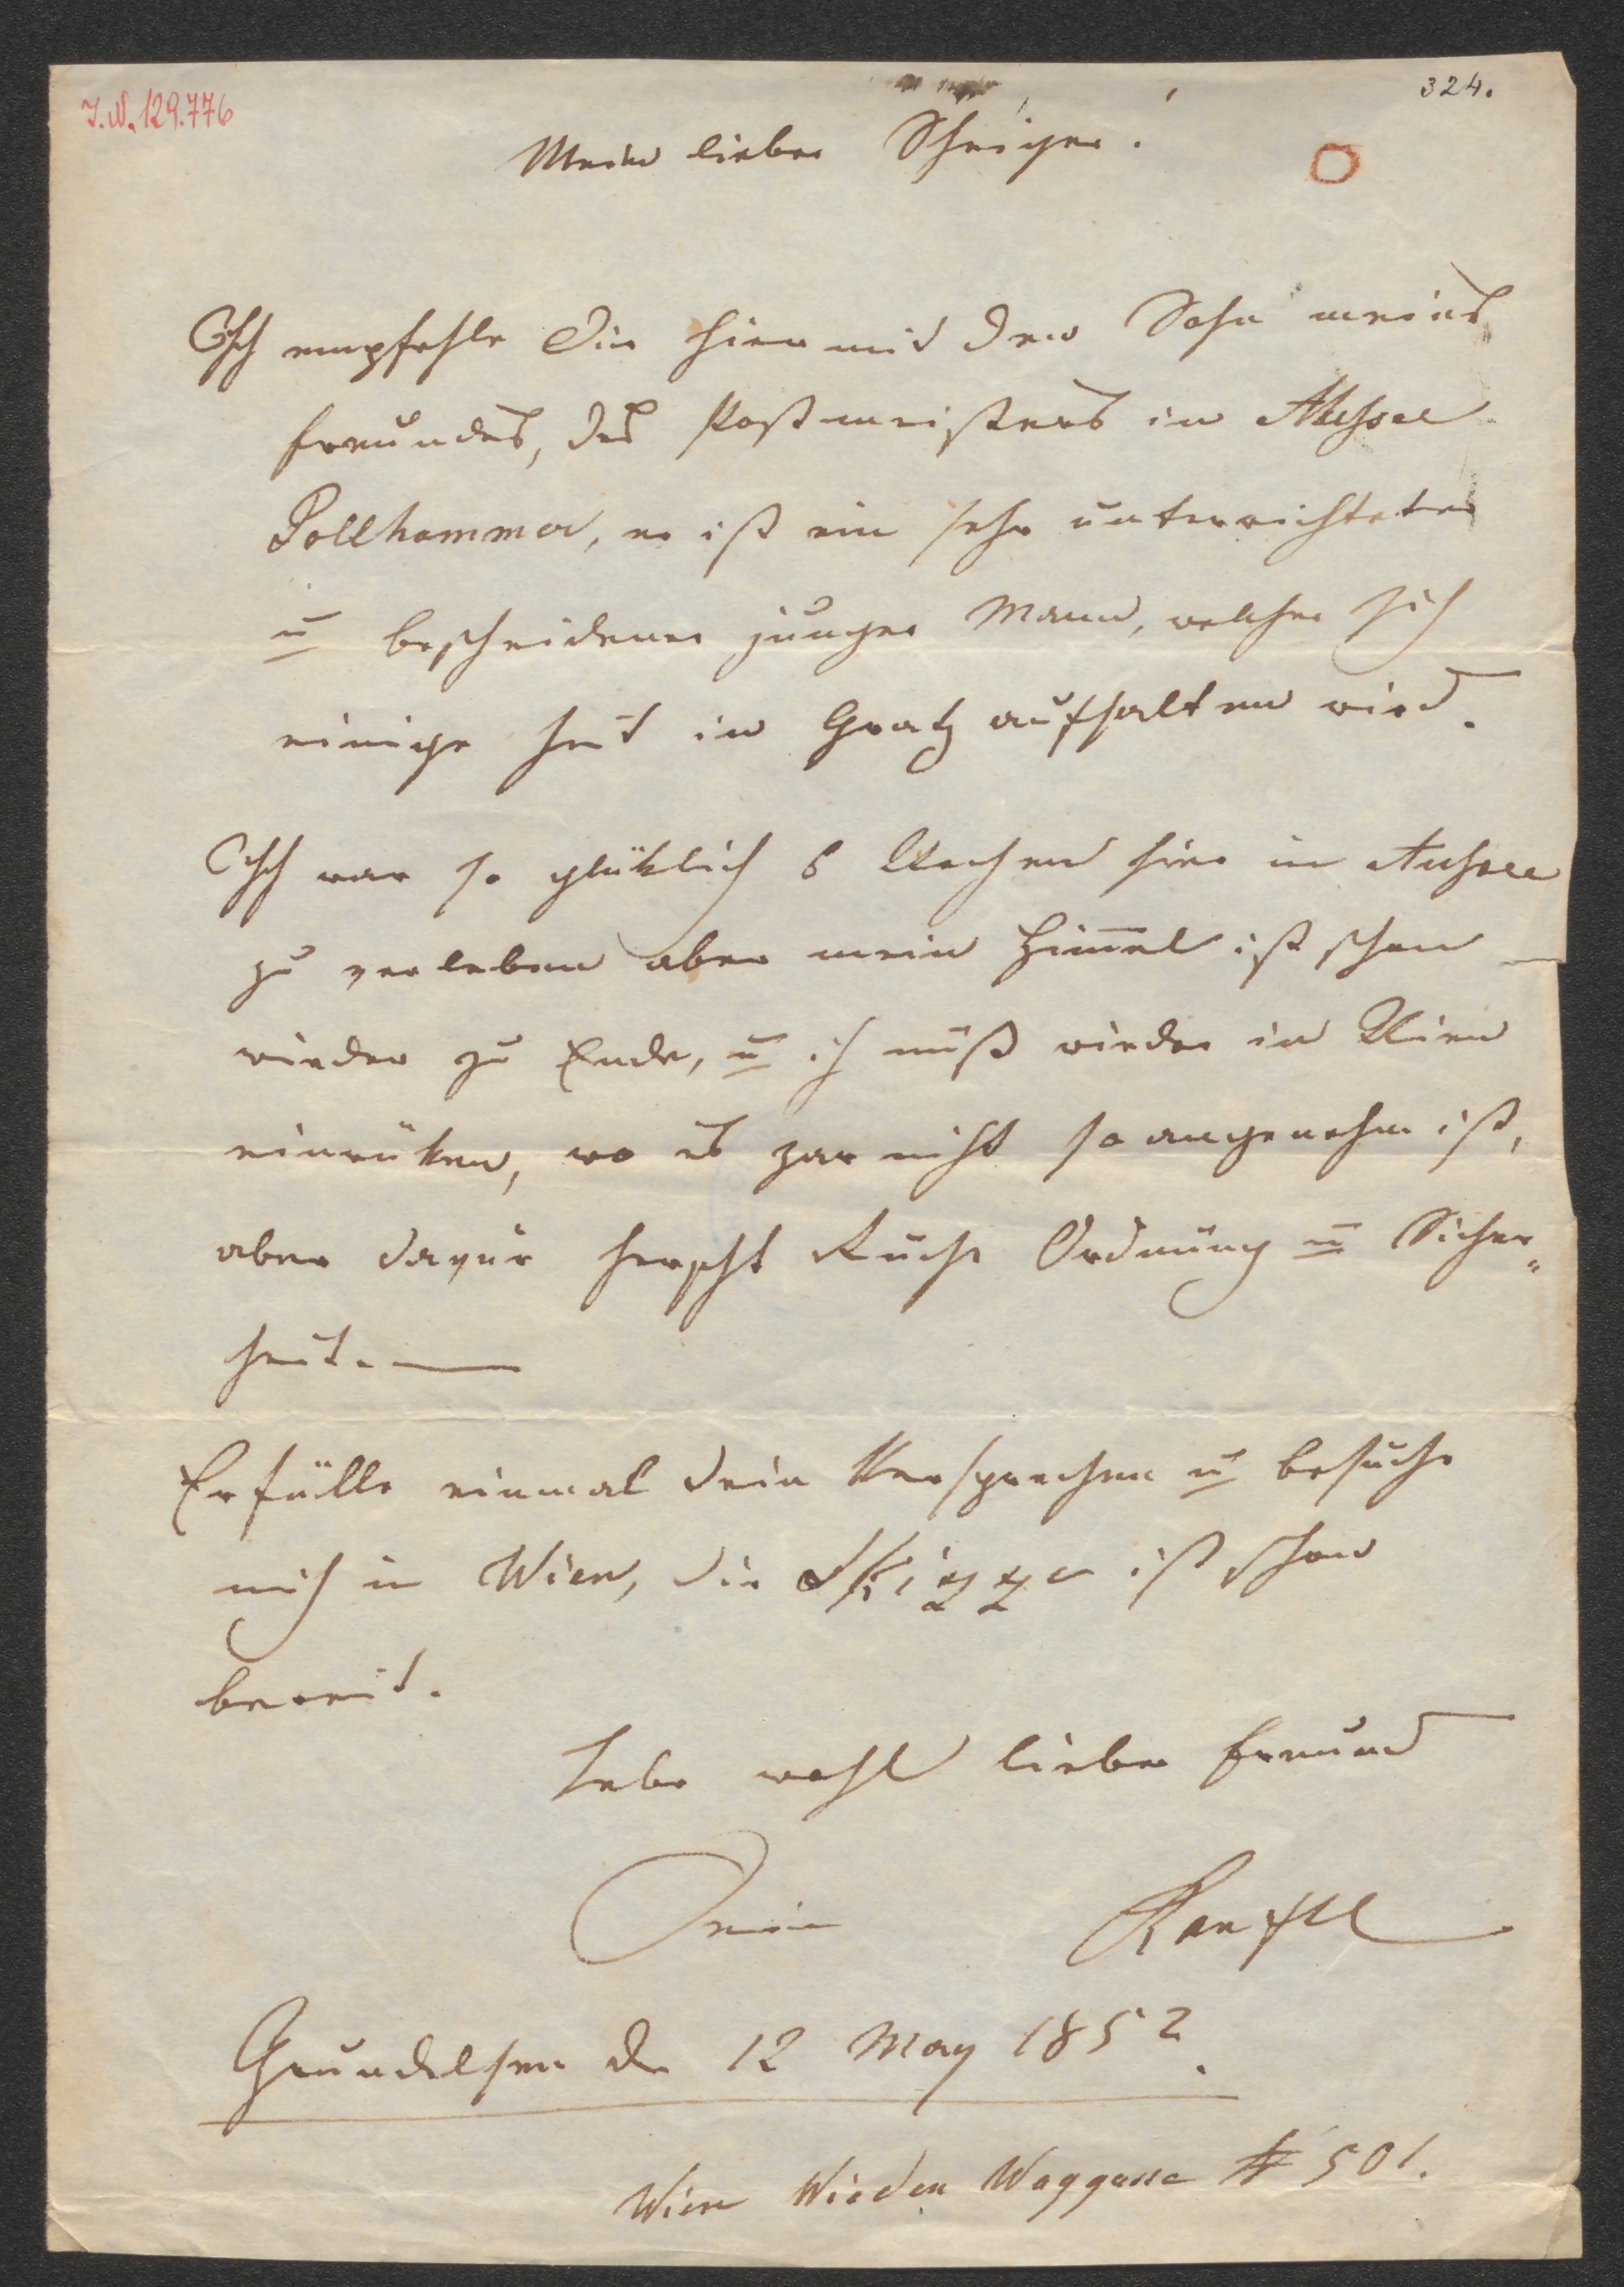 I.N. 129.776
324.
Mein lieber Scheiger!
Ich empfehle Dir hiermit den Sohn meines
Freundes, des Postmeisters in Aussee
Pollhammer, er ist ein sehr unterrichteter
u bescheidener junger Mann, welcher sich
einige Zeit in Gratz aufhalten wird.
Ich war so glüklich 6 Wochen hier in Aussee
zu verleben aber mein Him̄el ist schon
wieder zu Ende, u ich muß wieder in Wien
einrüken, wo es zwar nicht so angenehm ist,
aber dafür herscht Ruhe Ordnung u Sicher„
heit. —
Erfülle einmal dein Versprechen u besuche
mich in Wien, die Skizze ist schon
bereit.
Lebe wohl lieber Freund
Dein Ranftl
Grundelsee d 12 May 1852.
Wien Wieden Waggasse # 501.